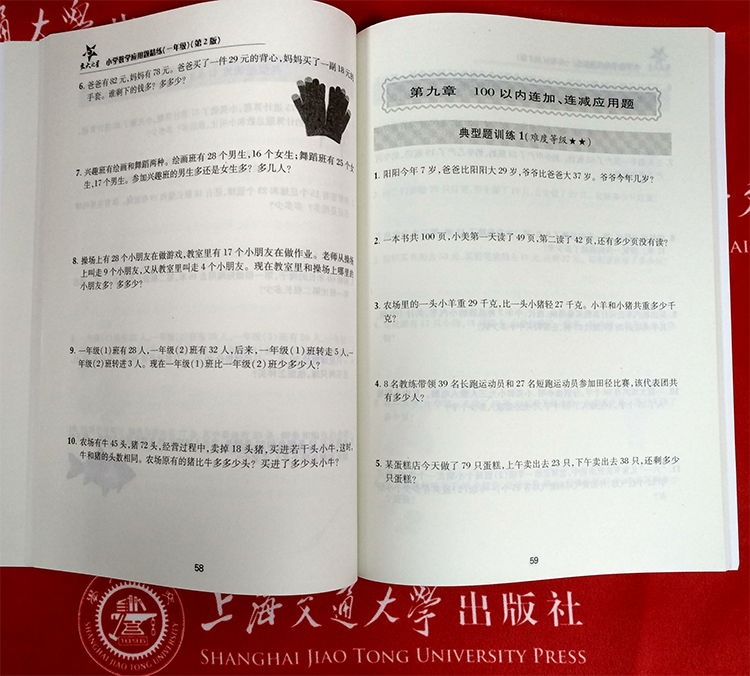 交大之星 小学数学应用题精练(一年级)(第2版)
6. 爸爸有82元,妈妈有78元。爸爸买了一件29元的背心,妈妈买了一副18元的
手套。谁剩下的钱多?多多少?
7. 兴趣班有绘画和舞蹈两种。绘画班有28个男生,16个女生;舞蹈班有25个女
生,17个男生。参加兴趣班的男生多还是女生多?多几人?
8. 操场上有28个小朋友在做游戏,教室里有17个小朋友在做作业。老师从操场
上叫走9个小朋友,又从教室里叫走4个小朋友。现在教室里和操场上哪里的
小朋友多?多多少?
9. 一年级(1)班有28人,一年级(2)班有32人,后来,一年级(1)班转走5人,一
年级(2)班转进3人。现在一年级(1)班比一年级(2)班少多少人?
10. 农场有牛45头,猪72头,经营过程中,卖掉18头猪,买进若干头小牛,这时,
牛和猪的头数相同。农场原有的猪比牛多多少头?买进了多少头小牛?
58
第九章 100以内连加、连减应用题
典型题训练1(难度等级★★)
1. 阳阳今年7岁,爸爸比阳阳大29岁,爷爷比爸爸大37岁。爷爷今年几岁?
2. 一本书共100页,小美第一天读了49页,第二读了42页,还有多少页没有读?
3. 农场里的一头小羊重29千克,比一头小猪轻27千克。小羊和小猪共重多少千
克?
4. 8名教练带领39名长跑运动员和27名短跑运动员参加田径比赛,该代表团共
有多少人?
5. 某蛋糕店今天做了79只蛋糕,上午卖出去23只,下午卖出去38只,还剩多少
只蛋糕?
59
上海交通大学出版社
SHANGHAI JIAO TONG UNIVERSITY PRESS
SHANGHAI JIAO TONG UNIVERSITY
1896